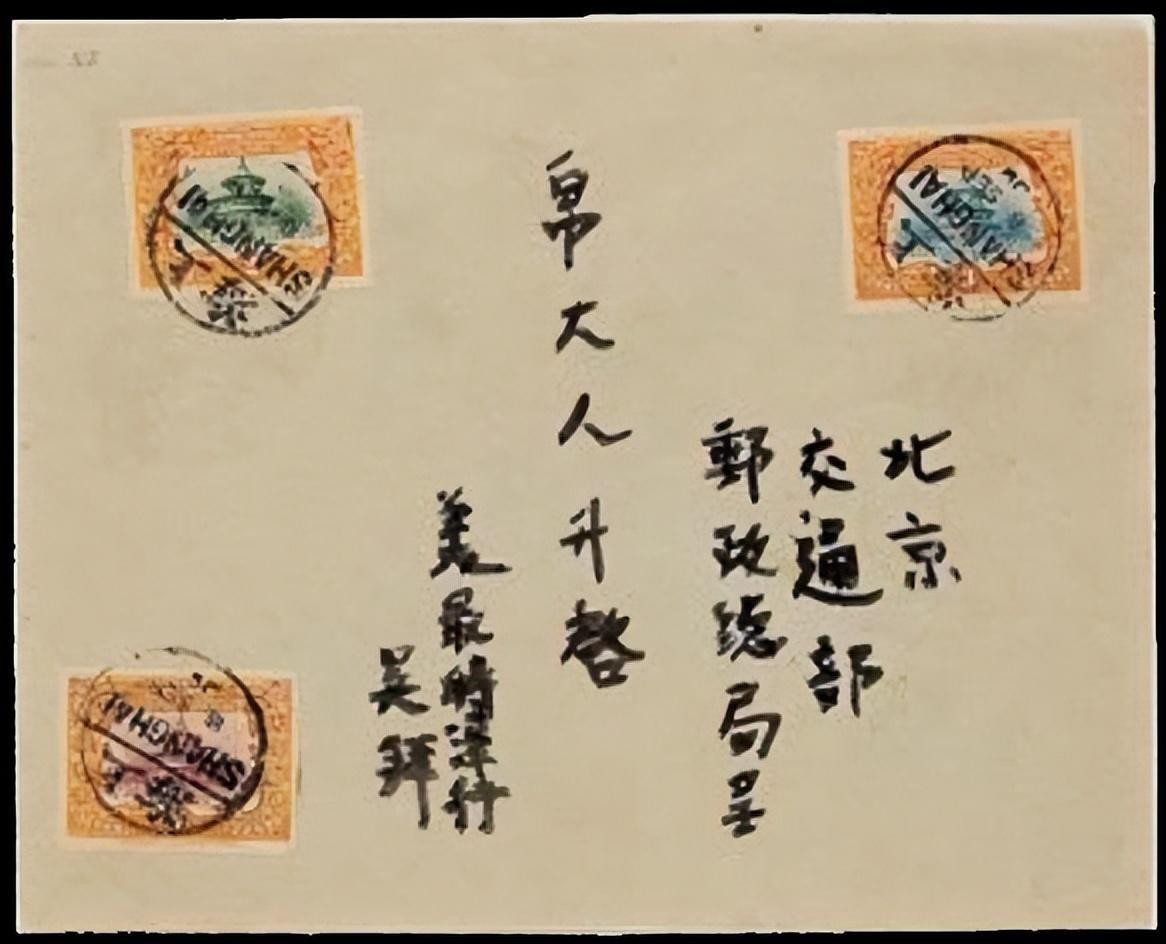 北京
交通部
郵政總局呈
帛大人升啓
美最時洋行
吴拜
SHANGHAI
SHANGHAI
SHANGHAI